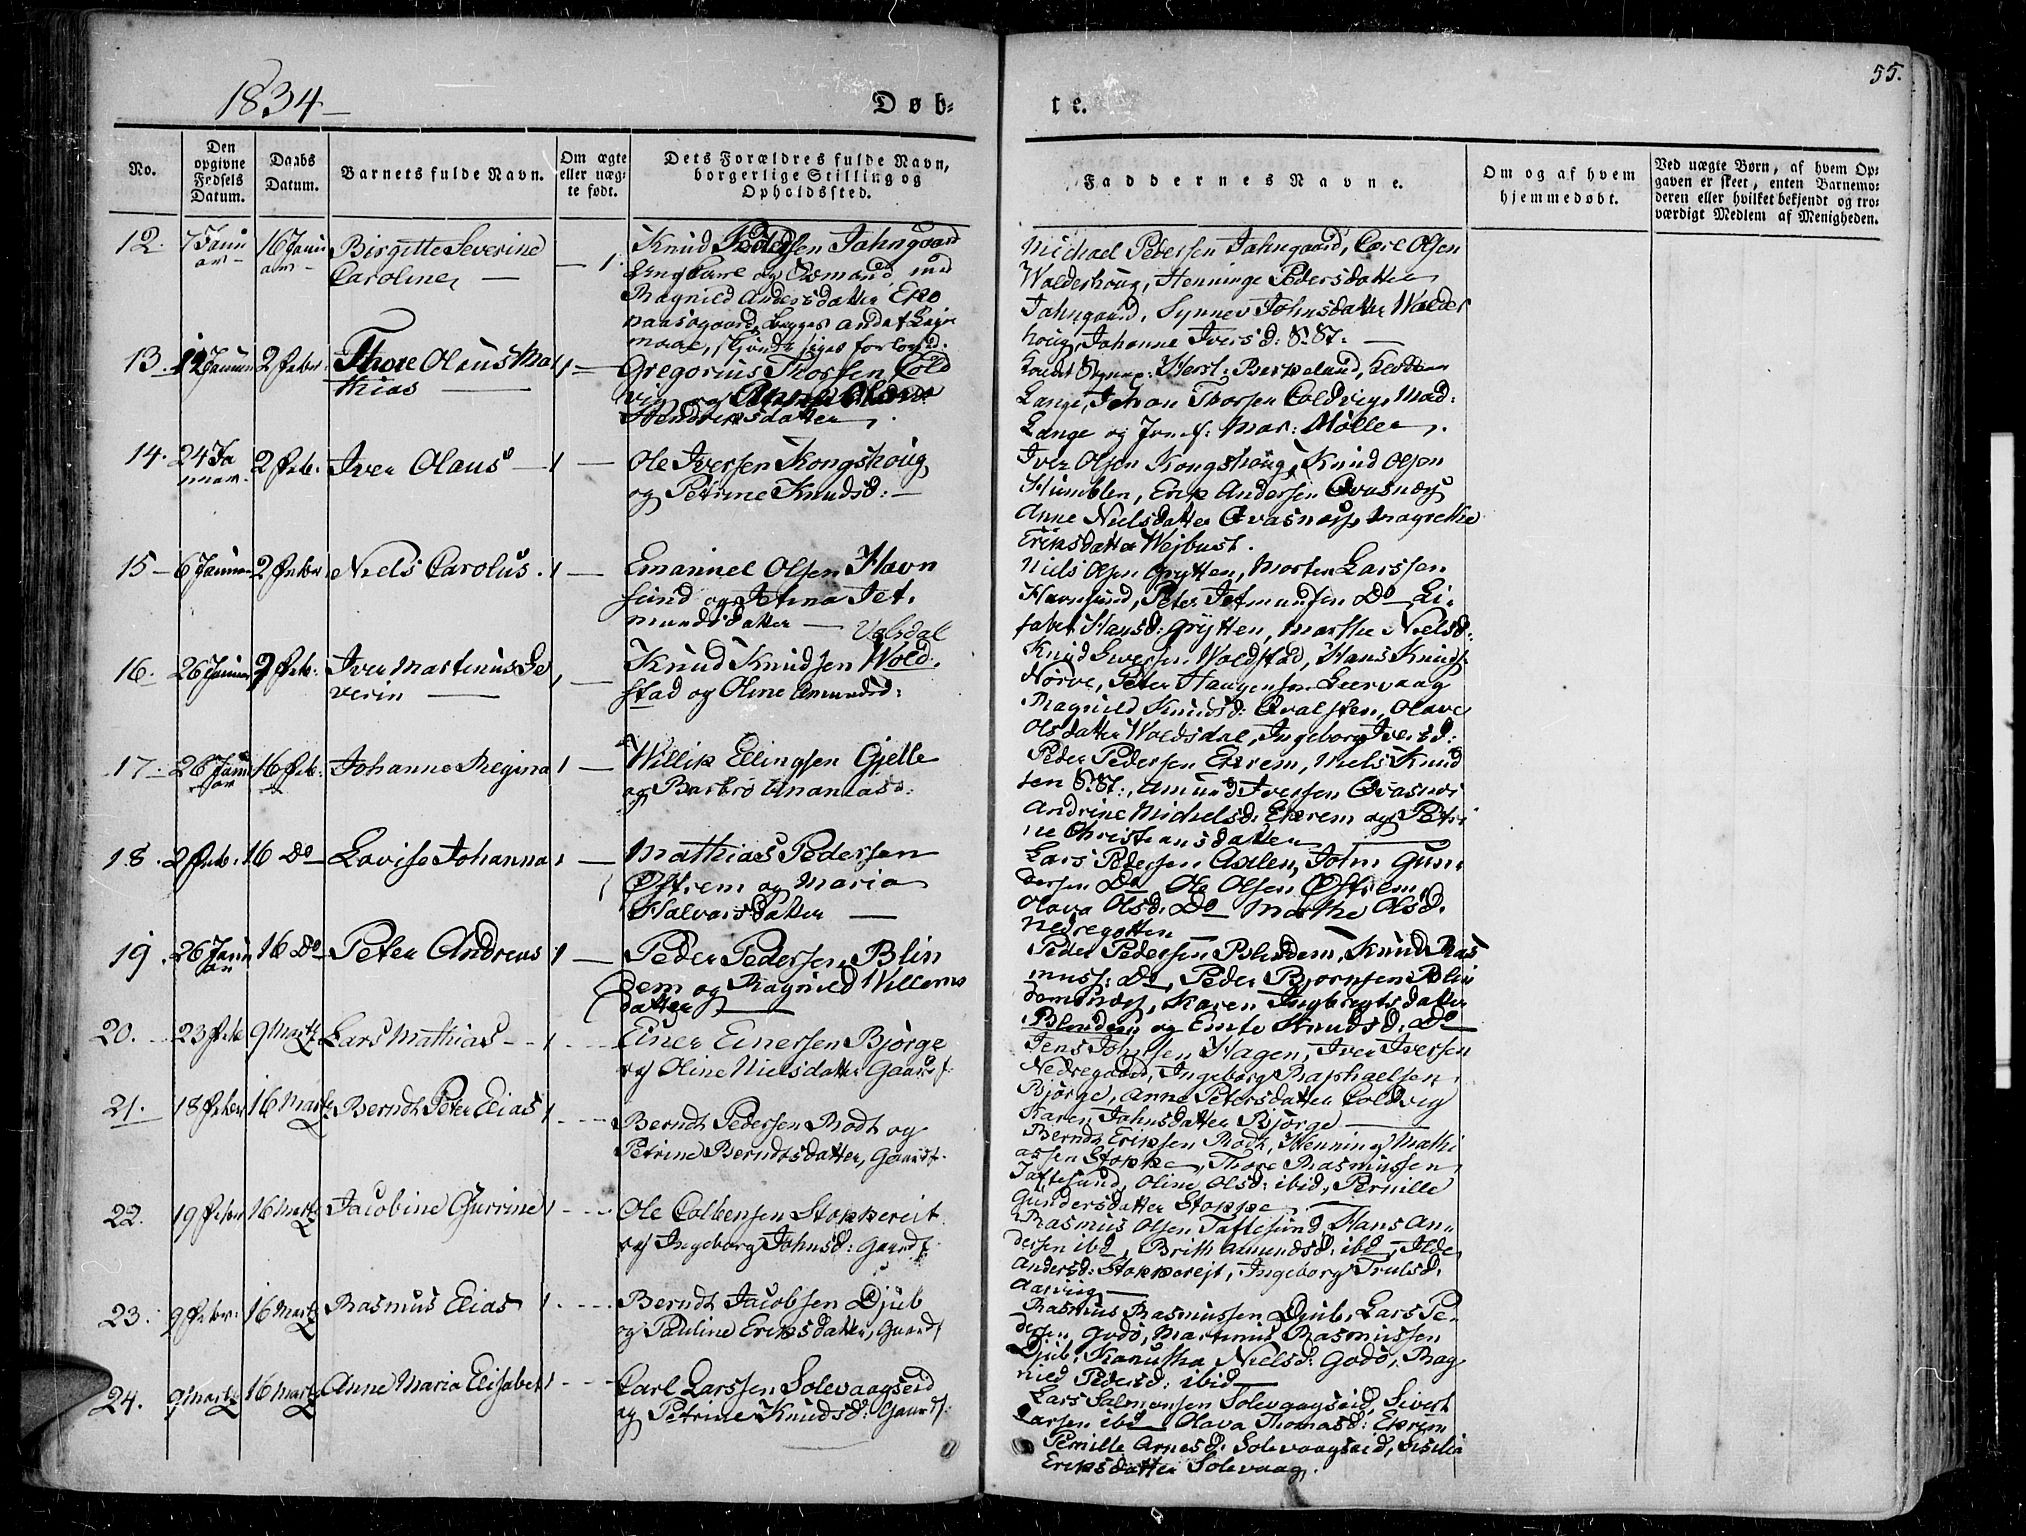 55.
1834
Døb-
te.
No.
Den opgivne Fødsels Datum.
Daabs Datum.
Barnets fulde Navn.
Om ægte eller uægte født.
Dets Forældres fulde Navn, borgerlige Stilling og Opholdssted.
Faddernes Navne.
Om og af hvem hjemmedøbt.
Ved uægte Børn, af hvem Opgaven er skeet, enten Barnemoderen eller hvilket bekjendt og troværdigt Medlem af Menigheden.
12. 7 Janu 16 Janu Birgitte Severine 1
ar ar Caroline
Knud Pedersen Jahngaard
Ungkarl og med
Ragnild Andersdatter
begges andet Leje
maal,
Michael Pedersen Jahngaard, Carl Olsen
Walderhoug, Henninge Pedersdatter
Jahngaard, Synnev Johnsdatter Walder
houg, Johanne Iversd:
13. 12 Januar 2 Feber Thore Olaus Ma 1
thias
Gregorius Thorsen Cold
vig og Anne
Hendricksdatter
Lange, Johan Thorsen Coldvig, Mad:
Lange og Jomf: Mar: Möller.
14. 24 Ja 2 Feb. Iver Olaus 1
nuar
Ole Iversen Kongshoug
og Petrine Knudsd:
Iver Olsen Kongshoug, Knud Olsen
Humblen, Erik Andersen Qvasnes
Anne Nielsdatter Qvasnes, Magrethe
Eriksdatter Wejbust.
15 6 Januar 2 Feber Niels Carolus. 1
Emanuel Olsen Havn
sund og Jetina Jet
mundsdatter
Valsdal
Niels Olsen Grytten, Morten Larssen
Havnsund, Peter Jetmundsen Do Li-
sabet Hansd: Grytten, Marthe Nielsd:
16. 26 Januar 9 Feb. Iver Martinus Se 1
verin
Knud Knudsen Wold-
stad og Oline Amundsd:
Knud Iversen Woldstad, Hans Knuds
Nörve, Peter Haagensen Leervaag
Ragnild Knudsd: Qvalsten, Olave
Olsdatter Woldsdal, Ingeborg Iversd:
17 26 Janu 16 Feb: Johanne Regina 1
ar
Willik Ellingsen Gjelle
og Barbro Ananiasd:
Peder Pedersen Ekrem, Niels Knud
sen Amund Iversen Qvasnes
Andrine Michelsd: Ekrem og Petri
ne Christiansdatter
18. 2 Feb. 16 Do Lovise Johanna 1
Mathias Pedersen
Østrem og Maria
Halvorsdatter
Lars Pedersen Axlen, John Gun-
dersen Do Ole Olsen Østrem
Olava Olsd. Do Marthe Olsd.
Nedregotten
19. 26 Janu 16 Do Peter Andreas 1
ar
Peder Pedersen Blin
dem og Ragnild Willems
datter
Peder Pedersen Blindem, Knud Ras
muss: Do, Peder Bjornsen Blin
demsnæs, Karen Ingebrigtsdatter
Blindem og Knudsd. Do
20. 23 Feb 9 Martz Lars Mathias 1
Einer Einersen Bjørge
og Oline Nielsdatter Gaardf.
Jens Johnsen Hagen, Iver Iversen
Nedregaard, Ingeborg Raphaelsen
Bjørge, Anne Petersdatter Coldvig
Karen Jahnsdatter Bjørge
21. 18 Feber 16 Martz Berndt Peter Elias 1
Berndt Pedersen Rødt og
Petrine Berndtsdatter, Gaardf.
Berndt Eriksen Rødt, Henning Mathi
assen Stokke, Thore Rasmussen
Taftesund, Oline Olsd: ibid, Pernille
Gundersdatter Stokke
22. 19 Feber 16 Martz Jacobine Gurrine 1
Ole Colbensen Stokkereit
og Ingeborg Johnsd: Gaardf.
Rasmus Olsen Taftesund Hans An-
dersen ibd, Brith Amundsd. ibd,
Andersd: Stokkerejt, Ingeborg Trulsd.
Aarvig
23. 9 Feber: 16 Martz Rasmus Elias 1
Berndt Jacobsen Djub
og Pauline Eriksdatter, Gaardf
Rasmus Rasmussen Djub, Lars Pe-
dersen, Godö, Martinus Rasmussen
Djub, Kanutha Nielsd: Godö, Rag
nild Pedersd: ibid
24. 9 Martz 16 Martz Anne Maria Elisabet 1
Carl Larssen Solevaagseid
og Petrine Knudsd: Gaardf.
Lars Salmonsen Solevaagseid, Sivert
Larsen ibd Olava Thomasd: Ekrem
Pernille Arnesd. Solevaagseid, Sisilia
Eriksdatter Solevaag.